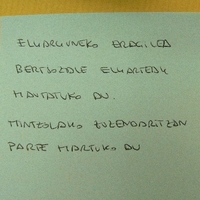 ELKARGUNEKO ERAGILEA
BERTSOZALE ELKARTEAK
HAUTATUKO DU.
MINTZOLAKO ZUZENDARITZAN
PARTE HARTUKO DU